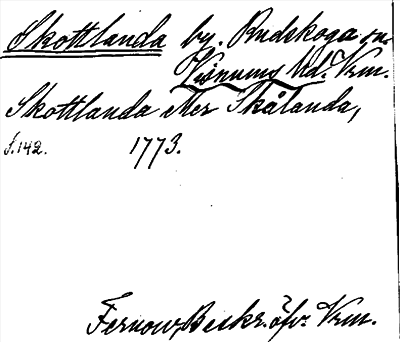 Skottlanda by. Rudskoga sn.
Visnums hd. Vrm.
Skottlanda eller Skålanda,
s. 142. 1773.
Fernow, Beskr. öfv. Vrm.